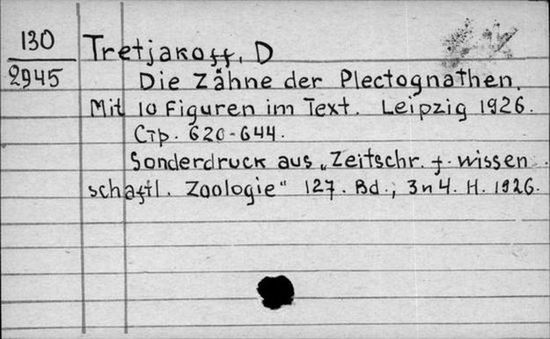 130
2945
Tretjakoff, D
Die Zähne der Plectognathen.
Mit 10 Figuren im Text. Leipzig 1926.
Стр. 620-644.
Sonderdruck aus „Zeitschr. f. wissen
schaftl. Zoologie“ 127. Bd.; 3 и 4. H. 1926.